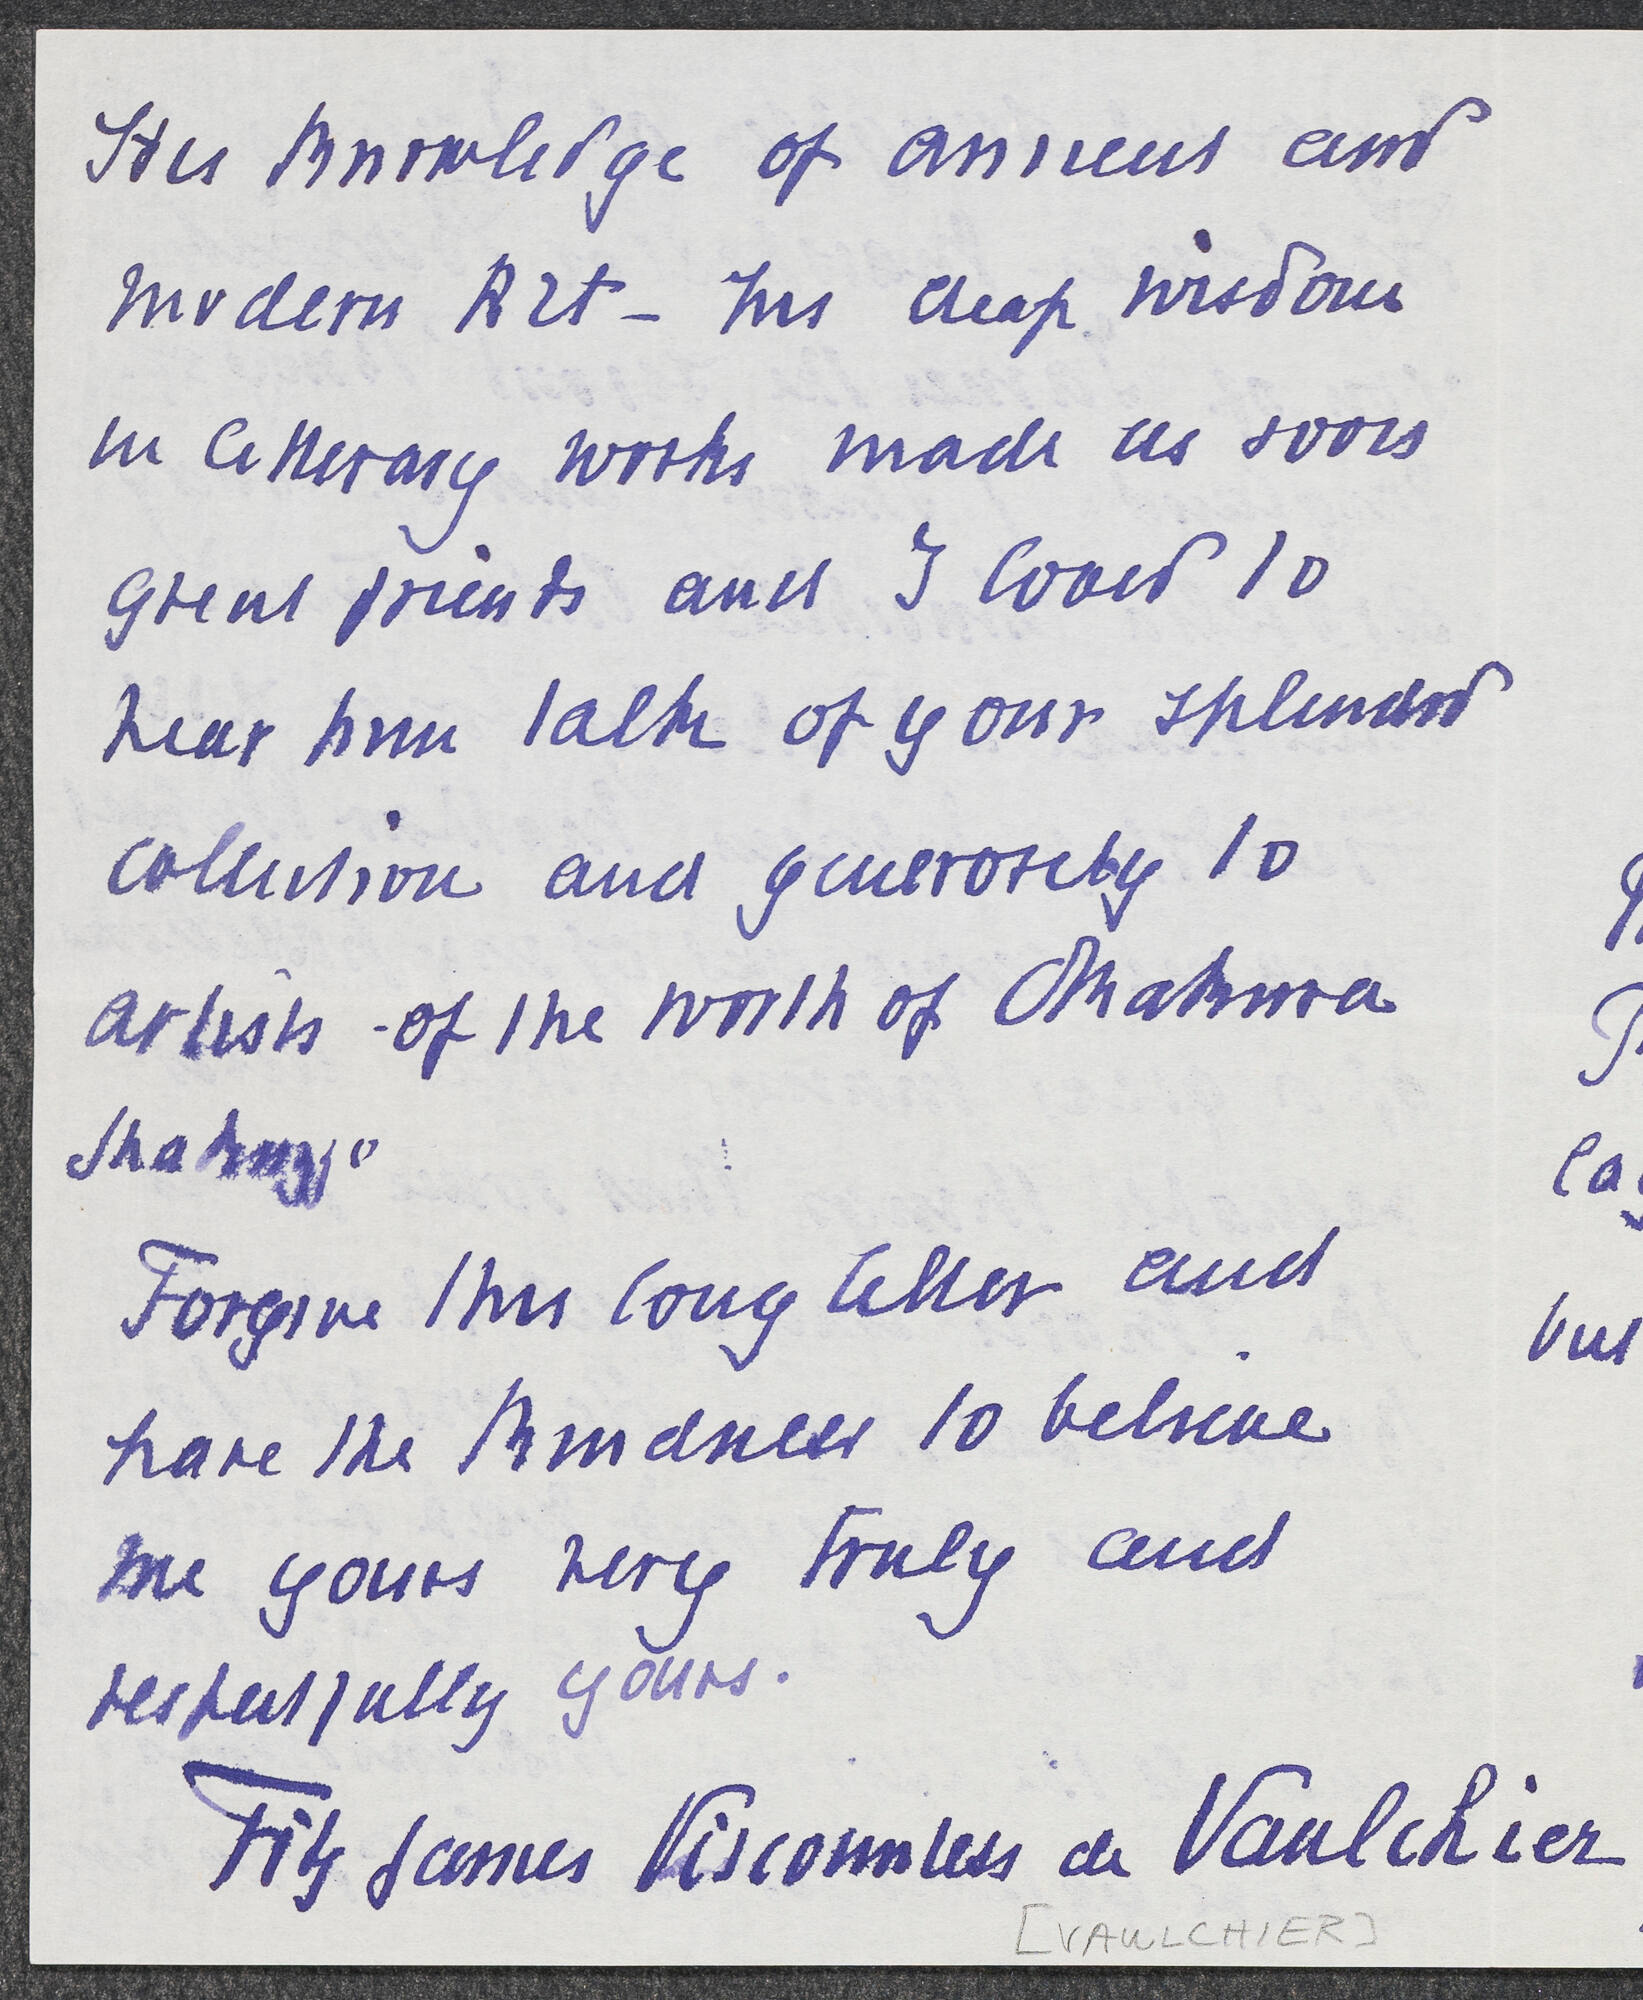 His knowledge of ancient and
modern Art - his deap wisdom
in litterary works made us soon
great friends and I loved to
hear him talk of your splendid
collection and generosity to
artists - of the worth of Okakura
Forgive this long letter and
have the kindness to believe
me yours very truly and
respectfully yours.
Fitz James Viscountess de Vaulchier
[VAULCHIER]
but